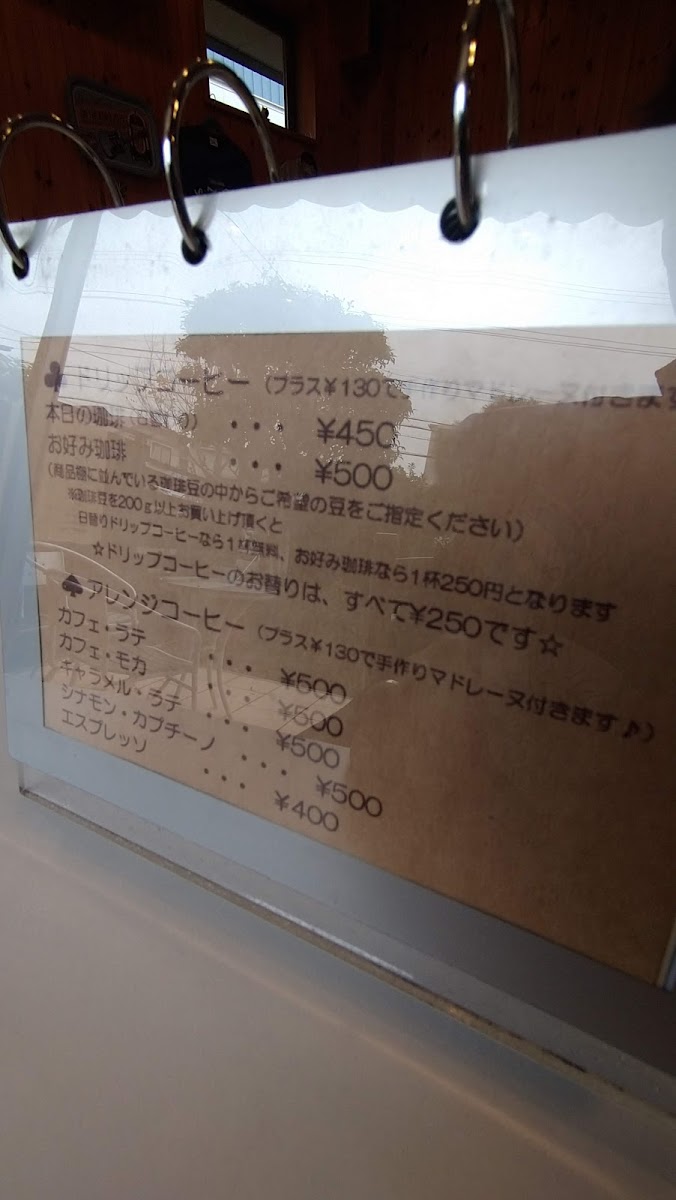 ♣ドリップコーヒー（プラス¥130で手作りマドレーヌ付きます
本日の珈琲（日替り） ・・・ ¥450
お好み珈琲 ・・・ ¥500
（商品棚に並んでいる珈琲豆の中からご希望の豆をご指定ください）
※珈琲豆を200g以上お買い上げ頂くと
日替りドリップコーヒーなら1杯無料、お好み珈琲なら1杯250円となります
☆ドリップコーヒーのお替りは、すべて¥250です☆
♠アレンジコーヒー（プラス¥130で手作りマドレーヌ付きます♪）
カフェ・ラテ ・・・ ¥500
カフェ・モカ ・・・ ¥500
キャラメル・ラテ ・・・ ¥500
シナモン・カプチーノ ・・・ ¥500
エスプレッソ ・・・ ¥400